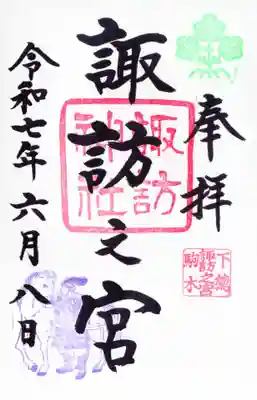 奉拝
下総
諏訪之宮
駒木
諏訪之宮
諏訪
神社
令和七年六月八日